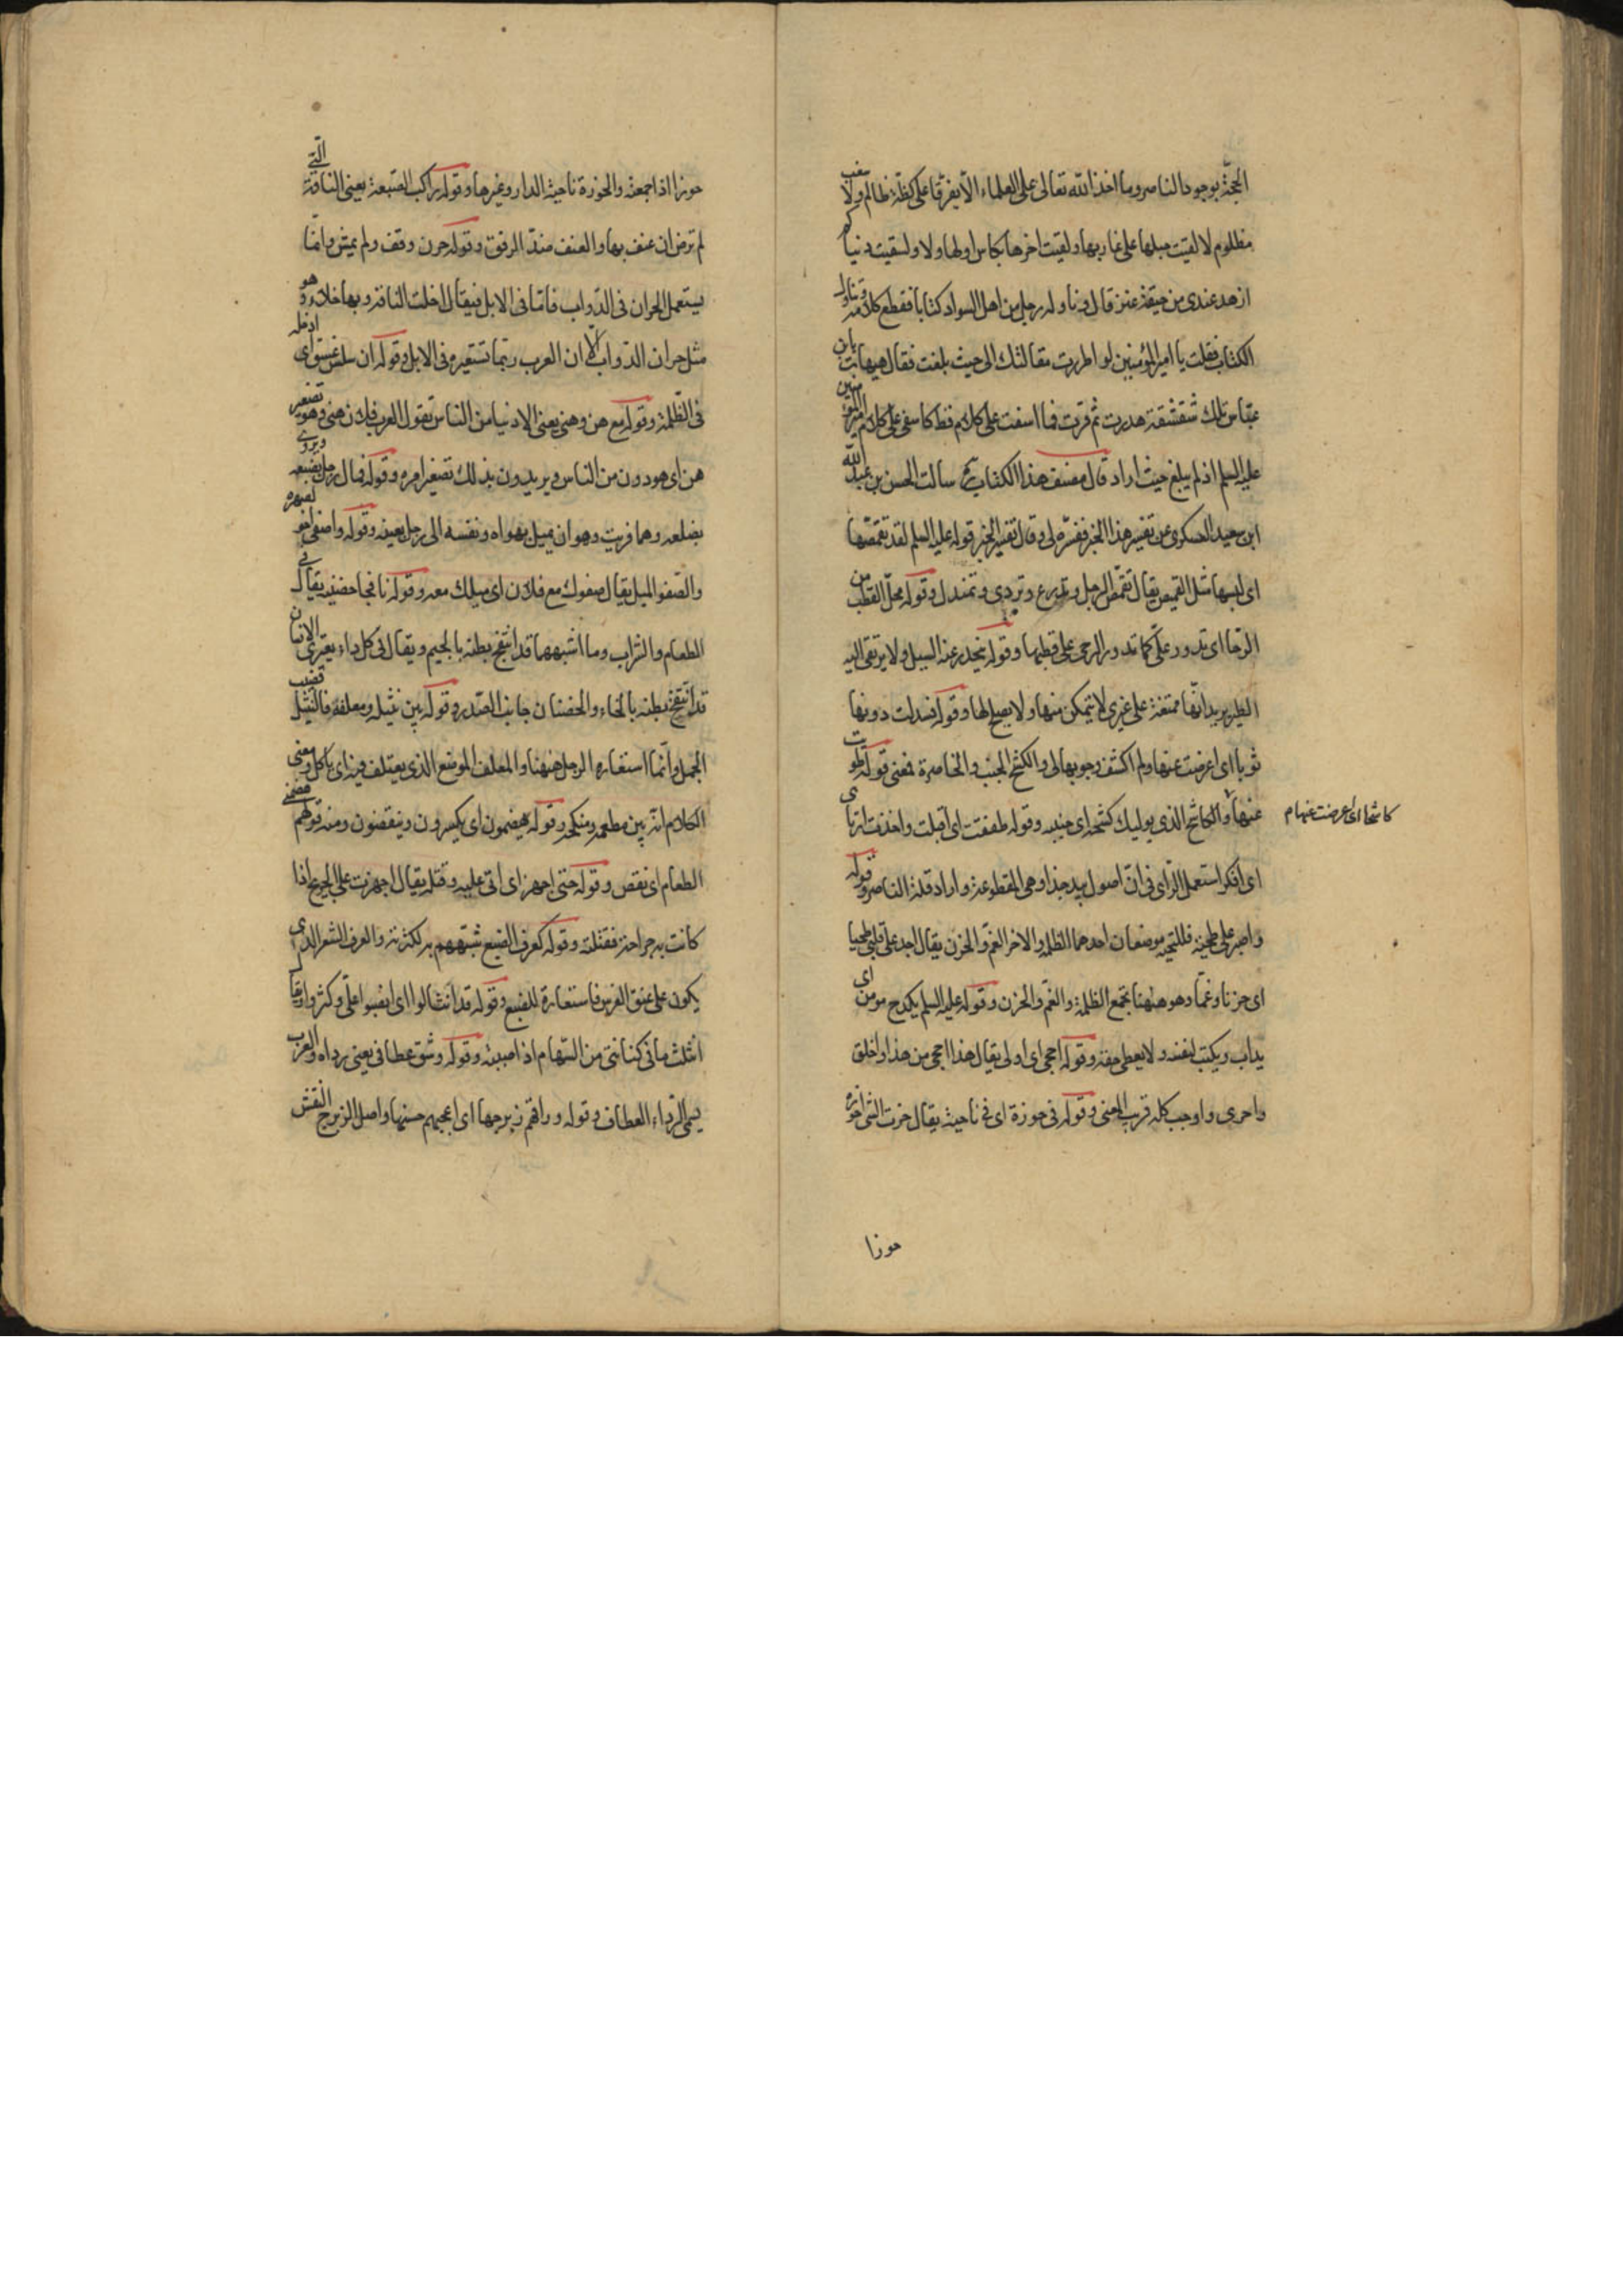 الحجة بوجود الناصر وما اخذ الله تعالى على العلماء الا يقروا على كظة ظالم ولا سغب
مظلوم لالقيت حبلها على غاربها ولقيت اخرها بكاس اولها ولا ولسقيت دنياكم
ازهد عندى من حبقة عنز قال وناوله رجل من اهل السواد كتابا فقطع كلامه وتناول
الكتاب فقلت يا امير المؤمنين لو اطردت مقالتك الى حيث بلغت فقال هيهات يا بن
عباس تلك شقشقة هدرت ثم قرت فما اسفت على كلام قط كاسفى على كلام امير المؤمنين
عليه السلم اذ لم يبلغ حيث اراد قال مصنف هذا الكتاب سالت الحسن بن عبد الله
ابن سعيد العسكرى عن تفسير هذا الخبر ففسره لى وقال تفسير الخبر قوله عليه السلم لقد تقمصها
اى لبسها مثل القميص يقال تقمص الرجل وتدرع وتردى وتمندل وقوله محل القطب من
الرحا اى تدور على كما تدور الرحى على قطبها وقوله ينحدر عنه السيل ولا يرتقى اليه
الطير يريد انها ممتنعة على غيرى لا يتمكن منها ولا يصلح لها وقوله فسدلت دونها
ثوبا اى اعرضت عنها ولم اكشف وجوبها لى والكشح الجنب والخاصرة فمعنى قوله طويت
عنها والكاشح الذى يوليك كشحه اى جنبه وقوله طفقت اى اقبلت واخذت ارتاى
كاشحا اى اعرضت عنها م
اى افكر استعمل الراى فى ان اصول بيد جذا وهى المقطوعة واراد قلة الناصر وقوله
واصبر على طخية فللطخية موضعان احدهما الظلمة والاخر الغم والحزن يقال اجد على قلبى طخيا
اى حزنا وغما وهو ههنا يجمع الظلمة والغم والحزن وقوله عليه السلم يكدح مومن اى
يداب ويكتب لنفسه ولا يعطى حقه وقوله احجى اى اولى يقال هذا احجى من هذا واخلق
واحرى واوجب كله قريب المعنى وقوله فى حوزة اى فى ناحية يقال حزت الشى احوزه
حوزا
حوزا اذا جمعته والحوزة ناحية الدار وغيرها وقوله كراكب الصعبة يعنى الناقة التى
لم ترض ان عنف بها والعنف ضد الرفق وقوله حرن وقف ولم يمش وانما
يستعمل الحران فى الدواب فاما فى الابل فيقال اخلت الناقة وبها خلاء وهو
مثل حران الدواب الا ان العرب ربما تستعيره فى الابل وقوله ان سلس غسق اى ادخله
فى الظلمة وقوله مع هن وهنى يعنى الادنياء من الناس تقول العرب فلان هنى وهو تصغير
هن اى هو دون من الناس ويريدون بذلك تصغير امره وقوله فمال رجل بضبعه ويروى
بضلعه وهما قريب وهو ان يميل بهواه ونفسه الى رجل بعينه وقوله واصغى اخر لصهره
والصغو الميل يقال صغوك مع فلان اى ميلك معه وقوله نافجا حضنيه يقال فى
الطعام والشراب وما اشبههما قد انتفج بطنه بالجيم ويقال فى كل داء يعترى الانسان
قد انتفخ بطنه بالخاء والحضنان جانبا الصدر وقوله بين نثيله ومعتلفه فالنثيل قضيب
الجمل وانما استعاره الرجل ههنا والمعلف الموضع الذى يعتلف فيه اى ياكل ومعنى
الكلام انه بين مطعمه ومنكحه وقوله يهضمون اى يكسرون وينقضون ومنه قولهم هضمنى
الطعام اى نقص وقوله حتى اجهز اى اتى عليه وقتله يقال اجهزت على الجريح اذا
كانت به جراحة فقتلته وقوله كعرف الضبع شبههم به لكثرته والعرف الشعر الذى
يكون على عنق الفرس فاستعاره للضبع وقوله قد انثالوا اى انصبوا على وكثروا ويقال
انثلت ما فى كنانتى من السهام اذا صببته وقوله وشق عطافى يعنى رداه والعرب
يسمى الرداء العطاف وقوله وراقهم زبرجها اى اعجبهم حسنها واصل الزبرج النقش